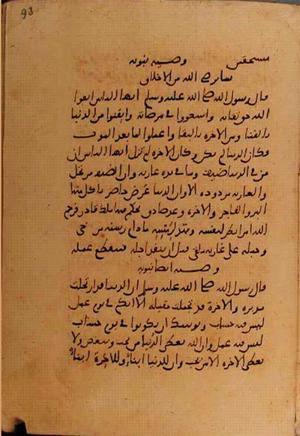 93
وصية نبوية
قال رسول الله صلى الله عليه وسلم أيها الناس اتقوا
الله حق تقاته واسعوا في مرضاته وأيقنوا من الدنيا
بالفنا ومن الآخرة بالبقا واعملوا لما بعد الموت
فكان الدنيا لم تكن وكان الآخرة لم تزل أيها الناس ان
من في الدنيا ضيف وما في يده عارية وان الضيف مرتحل
والعارية مردودة الا وان الدنيا عرض حاضر ياكل منها
البر والفاجر والآخرة وعد صادق يحكم فيها ملك قادر فرحم
الله امرا نظر لنفسه ومهد لرمسه ما دام رسنه مرخى
وحبله على غاربه ملقى قبل ان ينفد اجله فينقطع عمله
وصية أيضا نبوية
قال رسول الله صلى الله عليه وسلم ان الدنيا قد ارتحلت
مدبرة والآخرة قد تجملت مقبلة الا انكم في يوم عمل
ليس فيه حساب ويوشك ان تكونوا في يوم حساب
ليس فيه عمل وان الله يعطي الدنيا من يحب ويبغض ولا
يعطي الآخرة الا من يحب وان للدنيا ابناء وللآخرة ابناء